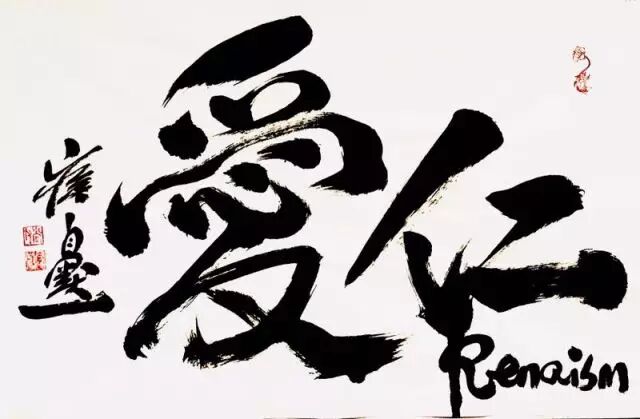 仁愛
Renaism
崔自默